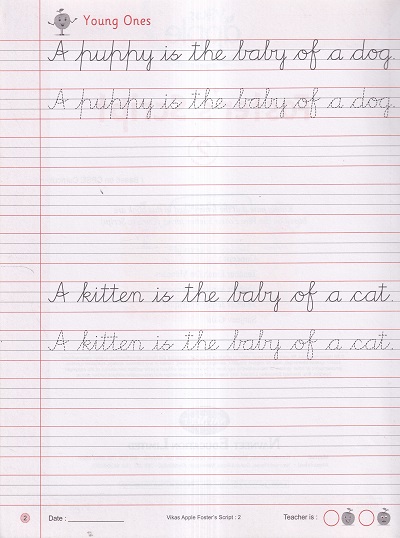 Young Ones
A puppy is the baby of a dog.
A puppy is the baby of a dog.
A kitten is the baby of a cat.
A kitten is the baby of a cat.
2 Date : Vikas Apple Foster's Script : 2 Teacher is :